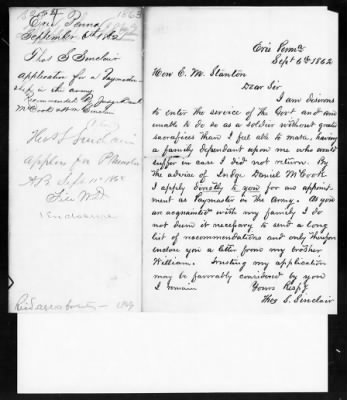 Erie Penna
September 6th 1862
Thos S Sinclair
application for a Paymaster
ship in the army
Recommended by Judge Danl
McCook & Wm Sinclair
Thos S Sinclair
Sept 11 1862
File W.D.
1 Enclosure
Erie Penna
Sept 6th 1862
Hon E. M. Stanton
Dear Sir
I am desirous
to enter the service of the Govt and am
unable to do so as a soldier without greater
sacrafices than I feel able to make, having
a family dependant upon me who would
suffer in case I did not return. By
the advice of Judge Daniel McCook
I apply directly to you for an appoint
ment as Paymaster in the Army. As you
an acquainted with my family I do
not deem it necessary to send a long
list of recommendations and only therefore
enclose you a letter from my brother
William. Trusting my application
may be favorably considered by you
I remain
Yours Respy
Thos S. Sinclair